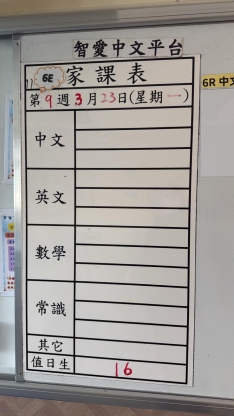 智愛中文平台
6E 家課表
第9週3月23日(星期一)
中文
英文
數學
常識
其它
值日生 16
6R 中文